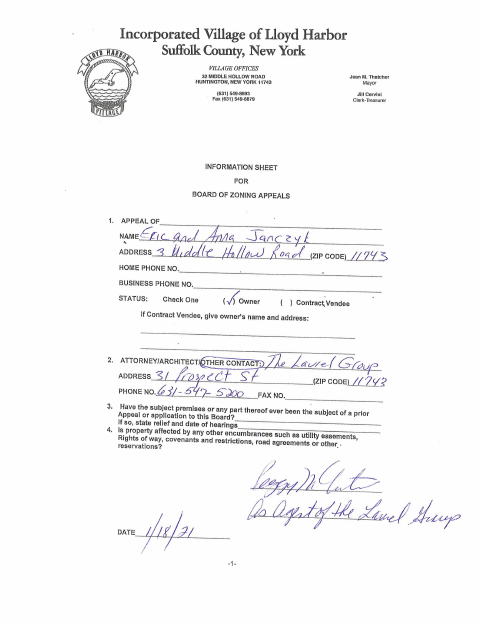 Incorporated Village of Lloyd Harbor
Suffolk County, New York
LLOYD HARBOR
VILLAGE
VILLAGE OFFICES
32 MIDDLE HOLLOW ROAD
HUNTINGTON, NEW YORK 11743
(631) 549-8893
Fax (631) 549-6879
Jean M. Thatcher
Mayor
Jill Cervini
Clerk-Treasurer
INFORMATION SHEET
FOR
BOARD OF ZONING APPEALS
1. APPEAL OF
NAME Eric and Anna Janczyk
ADDRESS 3 Middle Hollow Road (ZIP CODE) 11743
HOME PHONE NO.
BUSINESS PHONE NO.
STATUS: Check One (✓) Owner ( ) Contract Vendee
If Contract Vendee, give owner's name and address:
2. ATTORNEY/ARCHITECT/OTHER CONTACT: The Laurel Group
ADDRESS 31 Prospect St (ZIP CODE) 11743
PHONE NO. 631-547-5200 FAX NO.
3. Have the subject premises or any part thereof ever been the subject of a prior
Appeal or application to this Board?
If so, state relief and date of hearings
4. Is property affected by any other encumbrances such as utility easements,
Rights of way, covenants and restrictions, road agreements or other
reservations?
Peggy
As Agent of the Laurel Group
DATE 1/18/21
-1-